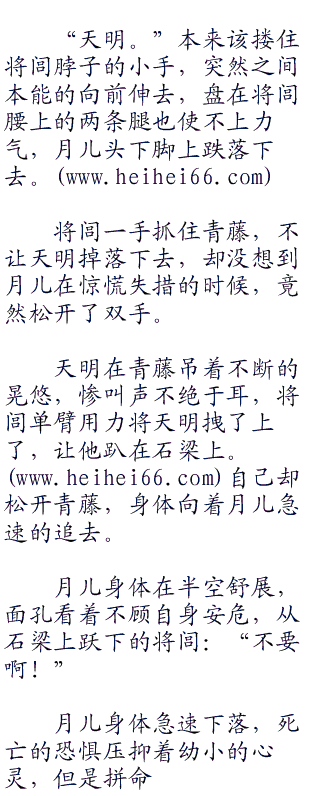 “天明。”本来该搂住
将闾脖子的小手，突然之间
本能的向前伸去，盘在将闾
腰上的两条腿也使不上力
气，月儿头下脚上跌落下
去。(www.heihei66.com)
将闾一手抓住青藤，不
让天明掉落下去，却没想到
月儿在惊慌失措的时候，竟
然松开了双手。
天明在青藤吊着不断的
晃悠，惨叫声不绝于耳，将
闾单臂用力将天明拽了上
了，让他趴在石梁上。
(www.heihei66.com)自己却
松开青藤，身体向着月儿急
速的追去。
月儿身体在半空舒展，
面孔看着不顾自身安危，从
石梁上跃下的将闾：“不要
啊！”
月儿身体急速下落，死
亡的恐惧压抑着幼小的心
灵，但是拼命